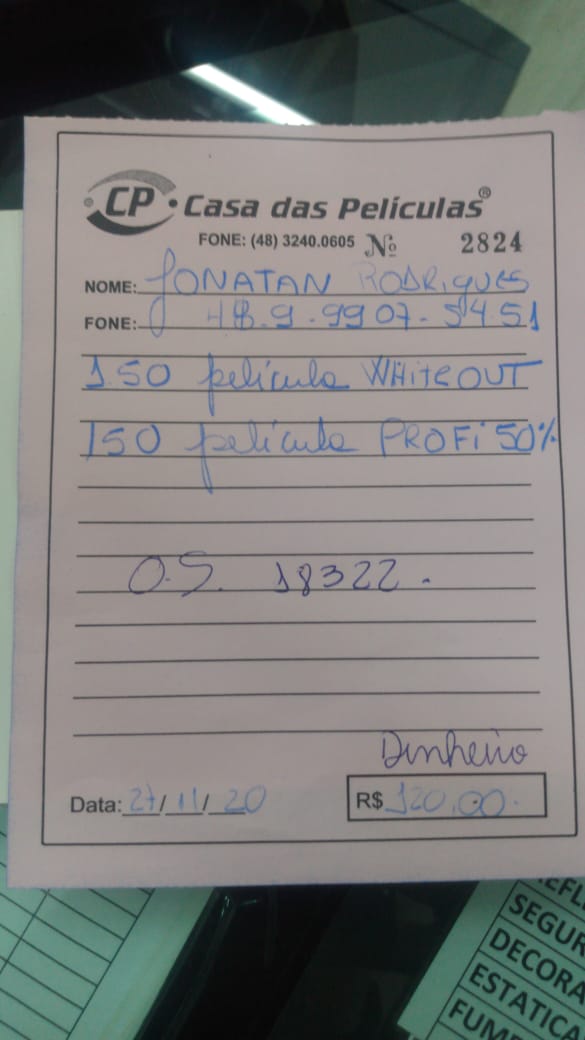 CP Casa das Películas®
FONE: (48) 3240.0605 Nº 2824
NOME: JONATAN RODRIGUES
FONE: 48.9.9907-5451
1.50 película WHiteOUT
150 película PROFi 50%
O.S. 18322.
Dinheiro
Data: 27/11/20 R$ 120,00.
SEGUR
DECORA
ESTATICA
FUME